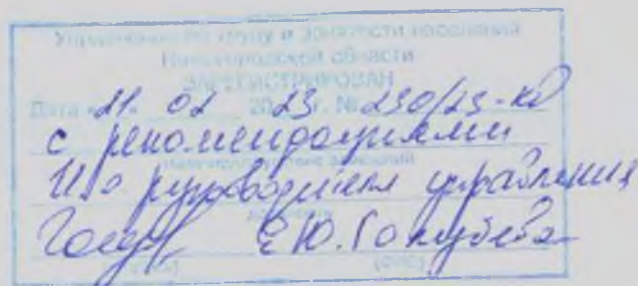 Управление по труду и занятости населения
Нижегородской области
ЗАРЕГИСТРИРОВАН
Дата «21» 02 2023 г. № 230/23-КД
с рекомендациями
И.о руководителя управления
Е.Ю. Голубева
(ФИО)